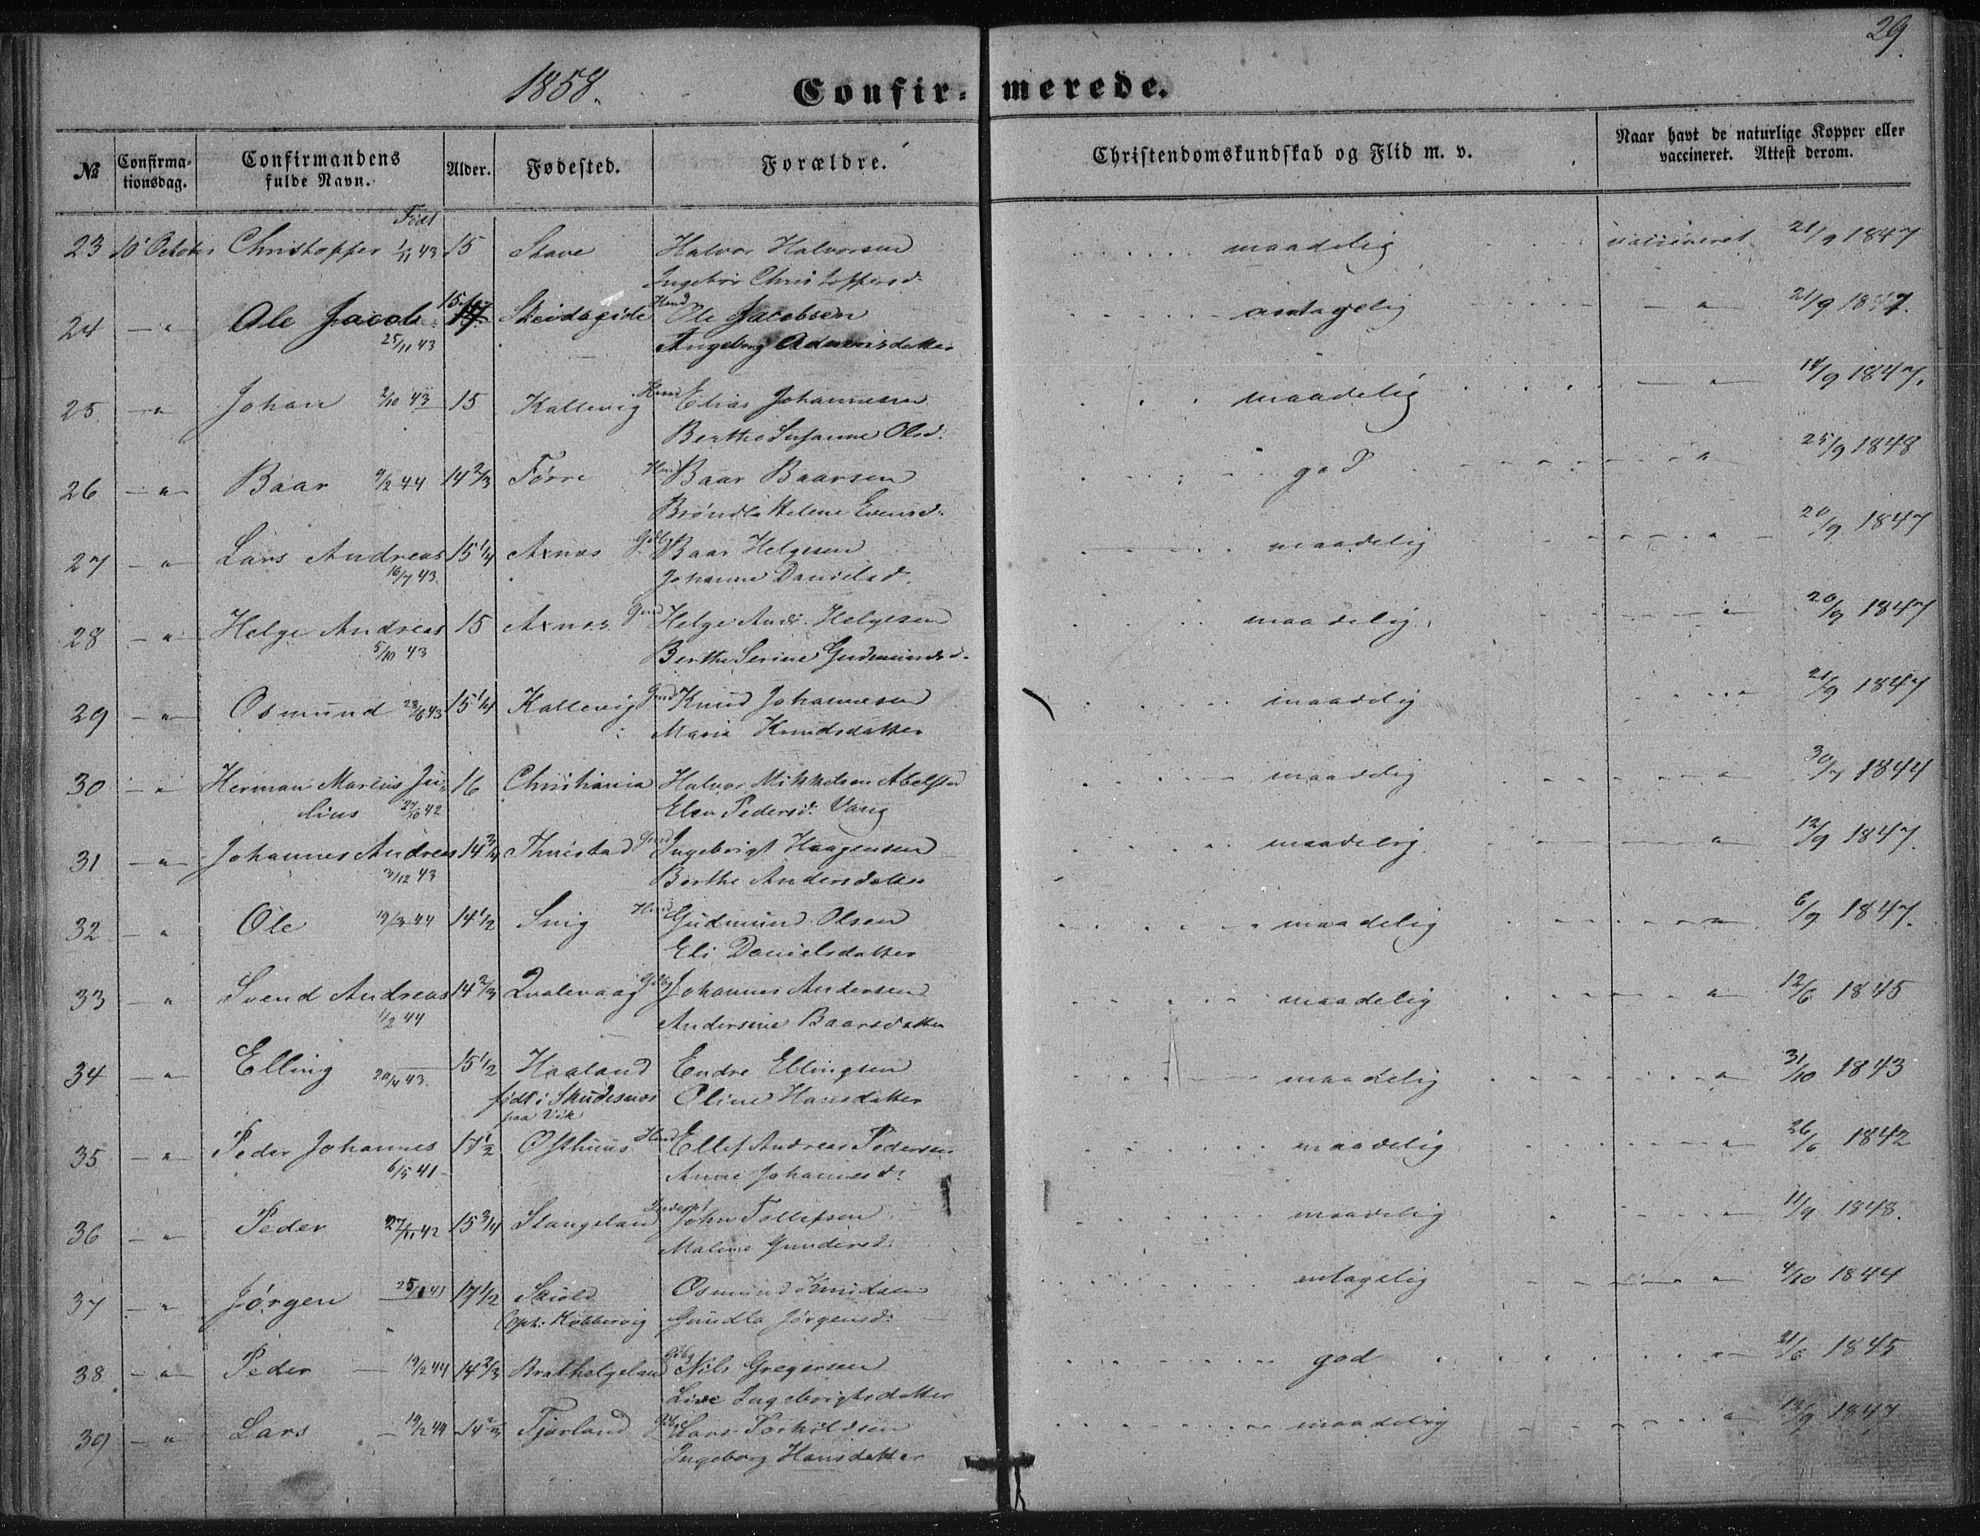 29.
1858.
Confir- merede.
№ Confirma-tionsdag. Confirmandens fulde Navn. Alder. Fødested. Forældre. Christendomskundskab og Flid m. v. Naar havt de naturlige Kopper eller vaccineret. Attest derom.
Født
23 10' October Christopher 1/11 43 15 Stave Halvor Halvorsen maadelig vaccineret 21/9 1847
Ingebor Christophersd.
24 — " Ole Jacob 15 Hmd Ole Jacobsen antagelig — " 21/9 1847.
25/11 43 Ingeborg
25 — " Johan 2/10 43 15 Kallevig Hmd Elias Johannesen maadelig — " — 14/9 1847.
Berthe Susanne Olsd.
26 — " — Baar 9/2 44 14 2/3 Førre Hmd Baar Baarsen god " 25/9 1848
Brøndla Helene Evensd.
27 — " Lars Andreas 15 1/4 Axnes Gbr Baar Helgesen maadelig " — 20/9 1847
16/7 43. Johanne Danielsd.
28 — " Helge Andreas 15 Axnes Gmd Helge Andr. Helgesen maadelig " — 20/9 1847
5/10 43 Berthe Serine Gudmundsd.
29 — " — Osmund 28/6 43 15 1/4 Kallevig Gmd Knud Johannesen maadelig " 21/9 1847
Maria Knudsdatter
30 — " Herman Marius Ju- 16 Christiania Halvor Mikkelsen maadelig — " — 30/7 1844
lius 27/10 42 Elen Pedersd. Vang
31 — " — Johannes Andreas 14 3/4 Thuestad Gmd Ingebrigt Haagensen maadelig — " — 12/9 1847.
3/12 43 Berthe Andersdatter
32 — " Ole 19/3 44 14 1/2 Snig Hmd Gudmund Olsen maadelig " 6/9 1847.
Eli Danielsdatter
33 — " Svend Andreas 14 2/3 Qvalevaag Gbr Johannes Andersen maadelig " — 12/6 1845
11/2 44 Andersine Baarsdatter
34 — " Elling 20/4 43. 15 1/2 Haaland Endre Ellingsen maadelig " — 31/10 1843
født i Skudesnes Oline Hansdatter
paa Vik
35 — " Peder Johannes 17 1/2 Østhuus Hmd Ellef Andreas Pedersen maadelig " — 26/6 1842
6/5 41 Anne Johannesd.
36 — " Peder 27/11 42 15 3/4 Stangeland John Tollefsen maadelig — " — 11/9 1848.
Maline Gundersd.
37 — " Jørgen 41 17 1/2 Skiold Osmund Knudsen antagelig — " " 4/10 1844
Opt: Kobbervig Gundla Jørgensd.
38 — " — Peder 19/2 44 14 2/3 Brathelgeland Gbr Nils Gregersen god " — 21/6 1845
Live Ingebrigtsdatter
39 — " Lars 19/2 44 14 2/3 Fjorland Gbr Lars Torkildsen maadelig " 13/9 1847
Ingeborg Hansdatter